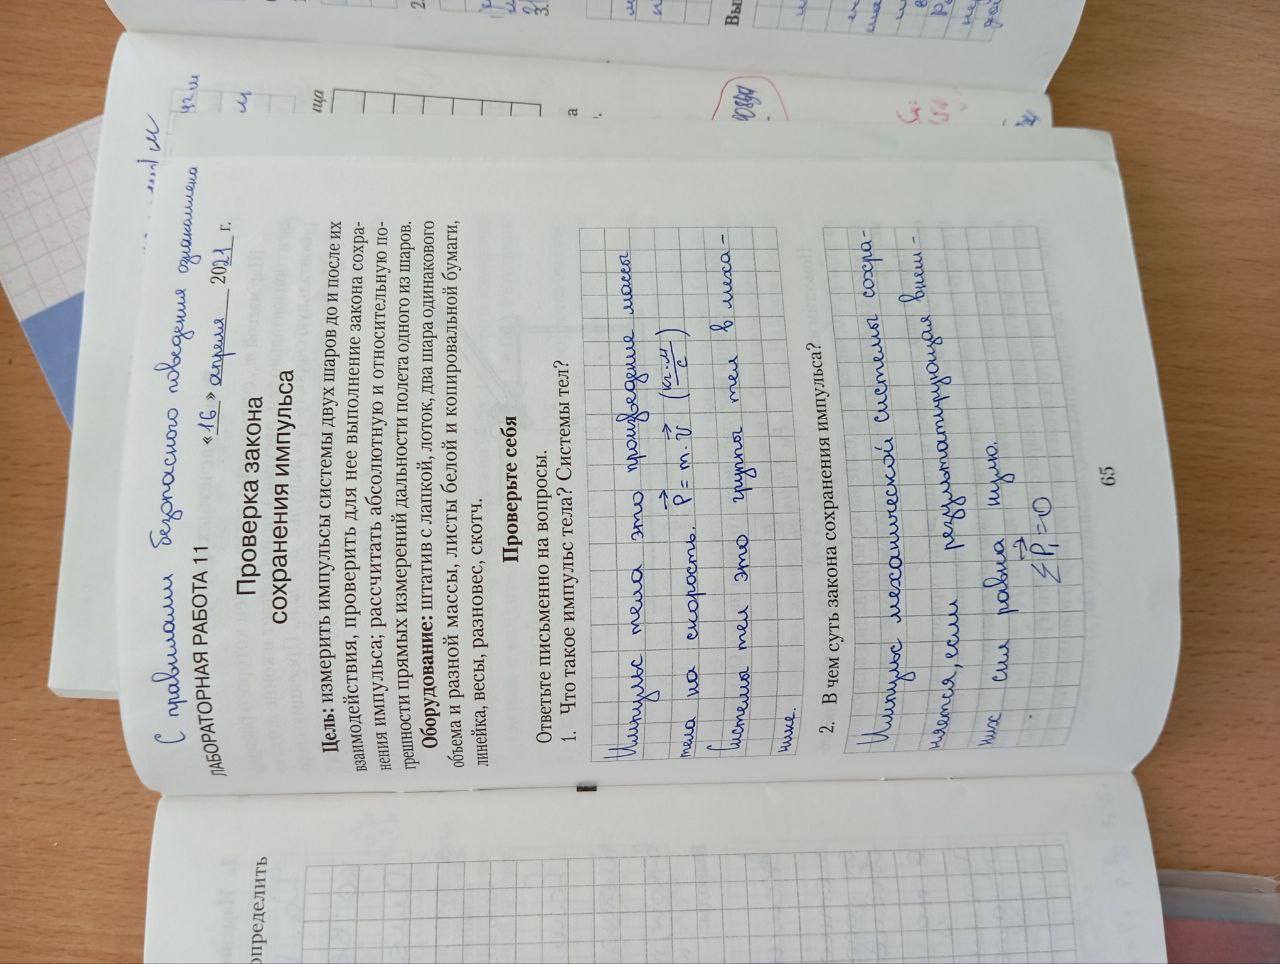 С правилами безопасного поведение ознакомлена
ЛАБОРАТОРНАЯ РАБОТА 11
«16» апреля 2021 г.
Проверка закона
сохранения импульса
Цель: измерить импульсы системы двух шаров до и после их
взаимодействия, проверить для нее выполнение закона сохра-
нения импульса; рассчитать абсолютную и относительную по-
грешности прямых измерений дальности полета одного из шаров.
Оборудование: штатив с лапкой, лоток, два шара одинакового
объема и разной массы, листы белой и копировальной бумаги,
линейка, весы, разновес, скотч.
Проверьте себя
Ответьте письменно на вопросы.
1. Что такое импульс тела? Системы тел?
Импульс тела это произведение массы
тела на скорость. P⃗ = m·υ⃗ (кг·м/с)
Системы тел это группы тел в меха-
нике.
2. В чем суть закона сохранения импульса?
Импульс механической системы сохра-
няется, если результатирующая внеш-
них сил равна нулю.
∑P⃗₁=0
65
определить